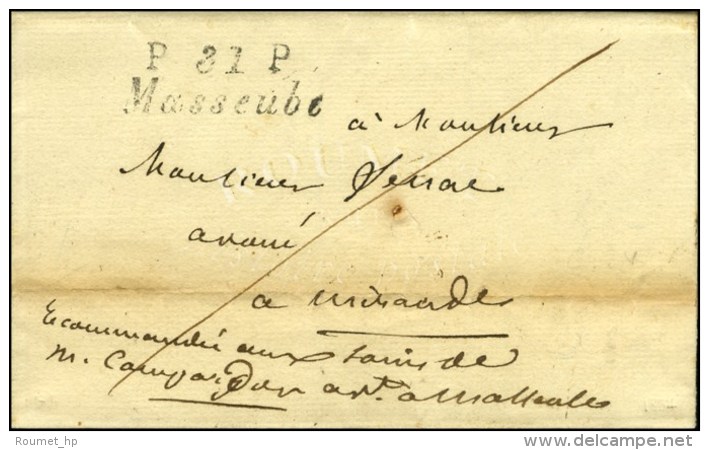 P 31 P
Masseube
à Monsieur
Monsieur Serrac
avoué
a mirande
Recommandée aux soins de
m. Campardon avt. a Masseube
Roumet_hp
delcampe.net